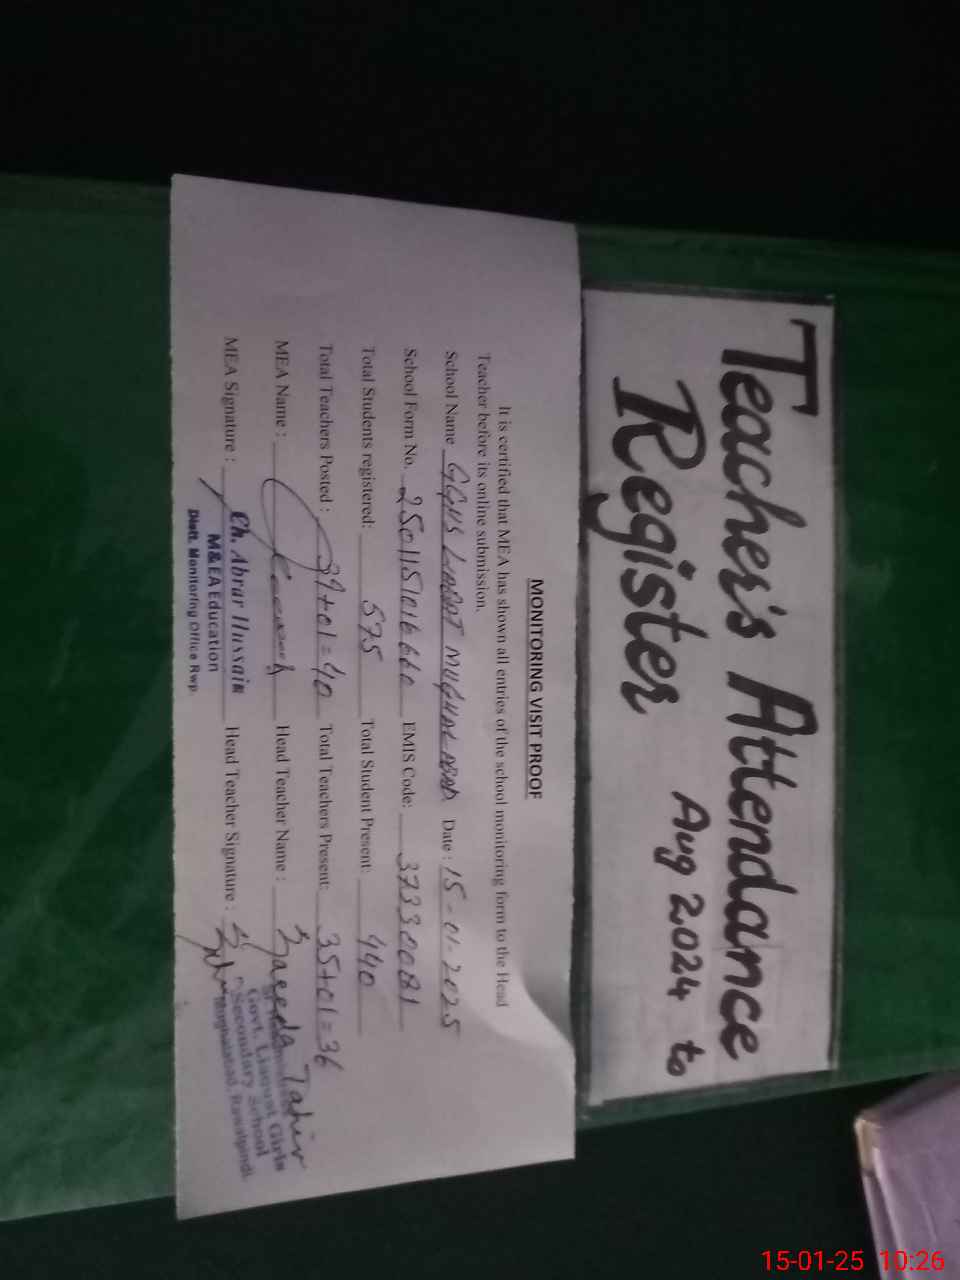 Teacher's Attendance
Register Aug 2024 to
MONITORING VISIT PROOF
It is certified that MEA has shown all entries of the school monitoring form to the Head
Teacher before its online submission.
School Name GGHS LIAQAT MUGHALABAD Date: 15-01-2025
School Form No. 2501151016660 EMIS Code: 37330081
Total Students registered: 575 Total Student Present: 440
Total Teachers Posted: 39+01=40 Total Teachers Present: 35+01=36
MEA Name: Head Teacher Name: Zaeeda Tahir
MEA Signature: Head Teacher Signature:
Ch. Abrar Hussain
M&EA Education
Distt. Monitoring Office Rwp.
Govt. Liaquat Girls
Secondary School
Mughalabad, Rawalpindi.
15-01-25 10:26